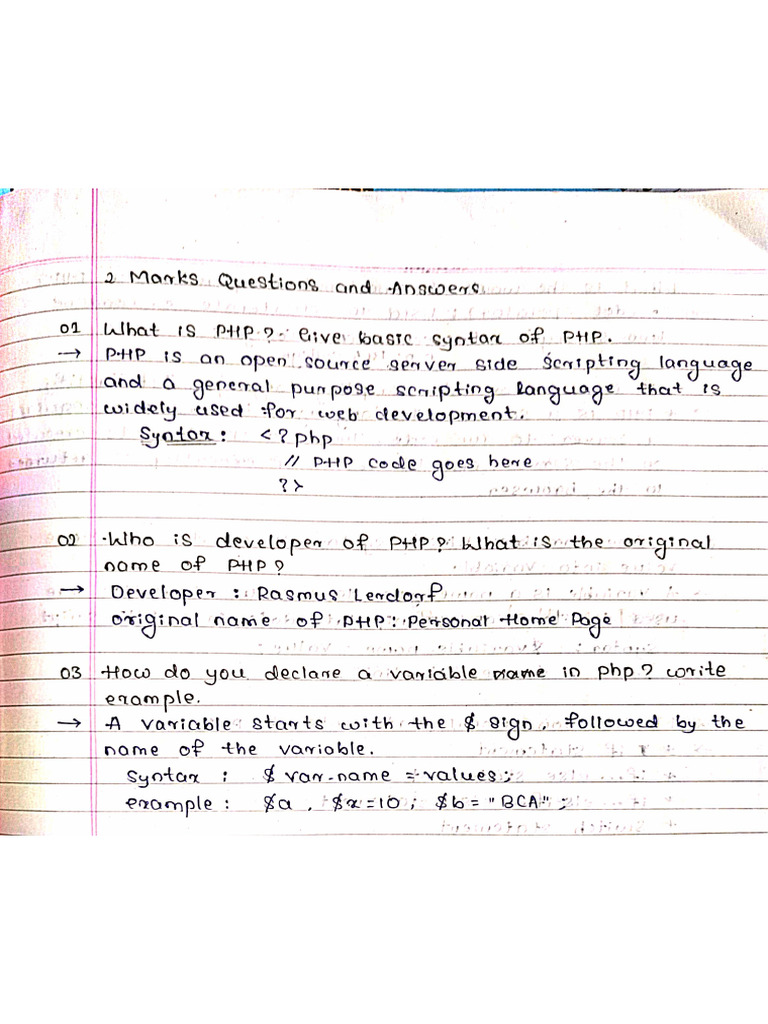 2 Marks Questions and Answers
01 What is PHP? Give basic syntax of PHP.
→ PHP is an open source server side scripting language
and a general purpose scripting language that is
widely used for web development.
Syntax : <?php
// PHP code goes here
?>
02 Who is developer of PHP? What is the original
name of PHP?
→ Developer : Rasmus Lerdorf
original name of PHP : Personal Home Page
03 How do you declare a variable name in php? write
example.
→ A variable starts with the $ sign, followed by the
name of the variable.
Syntax : $ var-name = values;
example : $a , $x=10 ; $b = "BCA" ;